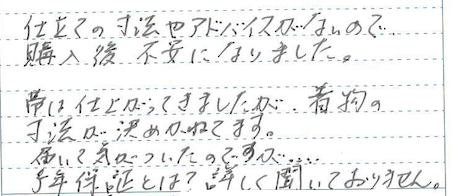 仕立ての寸法やアドバイスがないので
購入後 不安になりました。
帯は仕上がってきましたが、着物の
寸法が決めかねてます。
届いて気がついたのですが....
5年保証とは?詳しく聞いておりません。